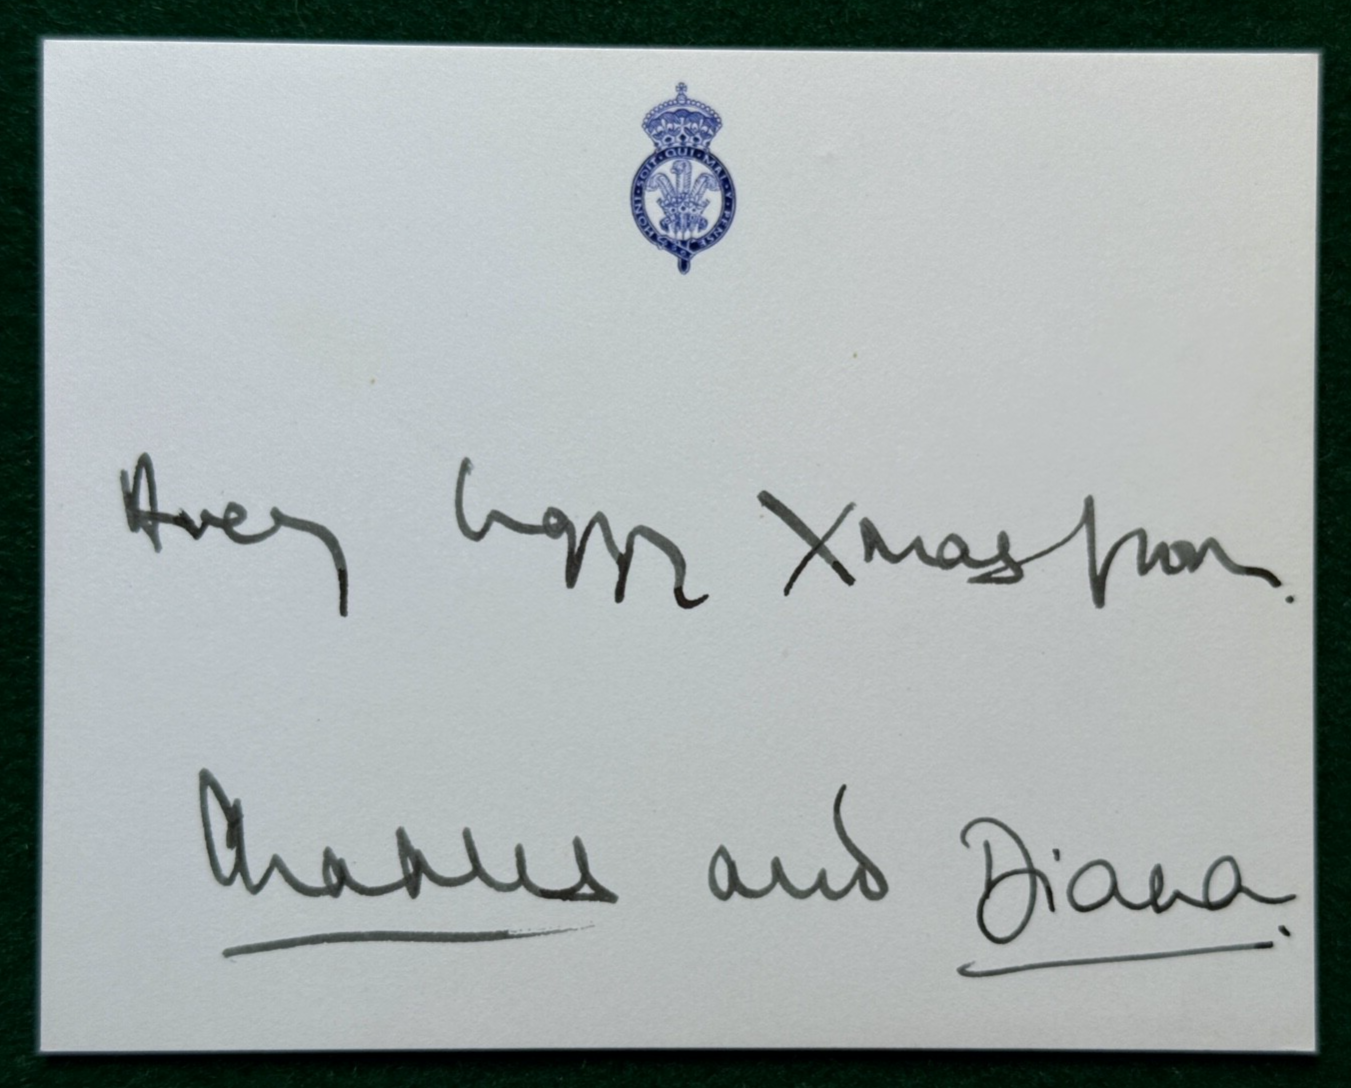 HONI·SOIT·QUI·MAL·Y·PENSE
A very happy Xmas from.
Charles and Diana.